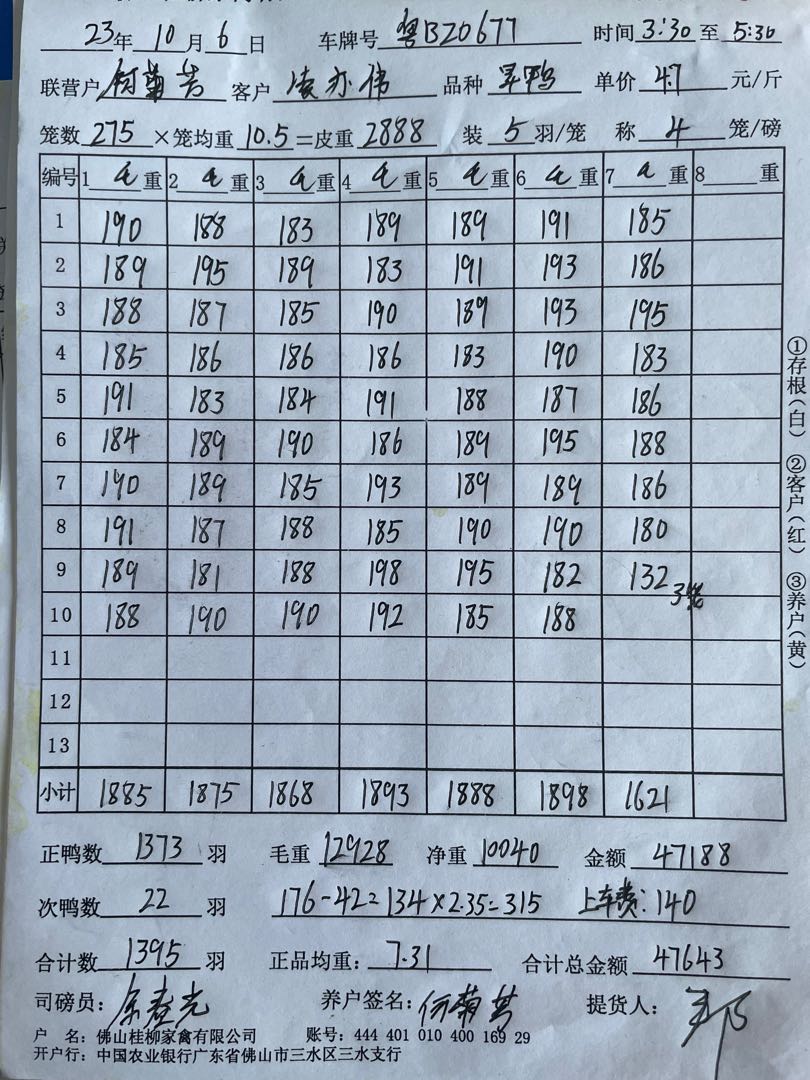 23年10月6日 车牌号 粤BZ0677 时间3:30至5:30
联营户何菊芳 客户凌亦伟 品种旱鸭 单价4.7元/斤
笼数275×笼均重10.5=皮重2888 装5羽/笼 称4笼/磅
编号 1毛重 2毛重 3毛重 4毛重 5毛重 6毛重 7毛重 8重
1 190 188 183 189 189 191 185
2 189 195 189 183 191 193 186
3 188 187 185 190 189 193 195
4 185 186 186 186 183 190 183
5 191 183 184 191 188 187 186
6 184 189 190 186 189 195 188
7 190 189 185 193 189 189 186
8 191 187 188 185 190 190 180
9 189 181 188 198 195 182 132 3笼
10 188 190 190 192 185 188
11
12
13
小计 1885 1875 1868 1893 1888 1898 1621
正鸭数1373羽 毛重12928 净重10040 金额47188
次鸭数22羽 176-42=134×2.35=315 上车费:140
合计数1395羽 正品均重:7.31 合计总金额47643
司磅员: 养户签名:何菊芳 提货人:
户 名:佛山桂柳家禽有限公司 账号:444 401 010 400 169 29
开户行:中国农业银行广东省佛山市三水区三水支行
①存根(白) ②客户(红) ③养户(黄)